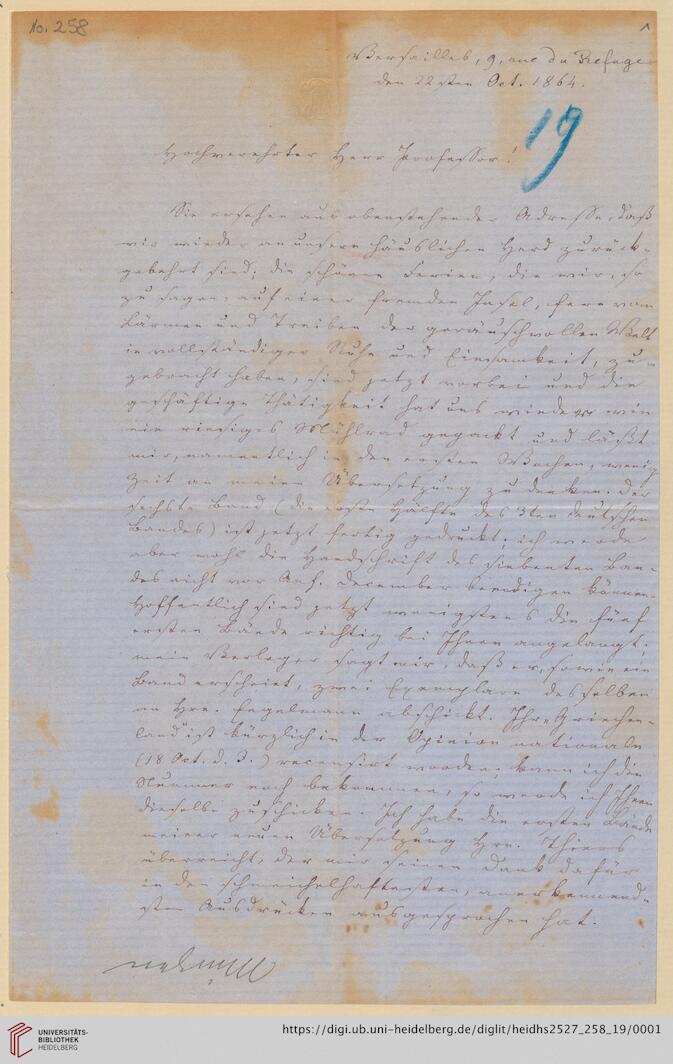 No. 258
1
Versailles, 9, rue du Refuge
den 22sten Oct. 1864.
19
Hochverehrter Herr Professor!
Sie ersehen aus obenstehender Adresse, daß
wir wieder an unsern häuslichen Herd zurück-
gekehrt sind; die schönen Ferien, die wir, so
zu sagen, auf einer fremden Insel, fern vom
Lärmen und Treiben der geräuschvollen Welt
in vollständiger Ruhe und Einsamkeit, zu-
gebracht haben, sind jetzt vorbei und die
geschäftige Thätigkeit hat uns wieder wie
ein riesiges Mühlrad gepackt und läßt
mir, namentlich in den ersten Wochen, wenig
Zeit an meine Übersetzung zu denken. Der
sechste Band (die erste Hälfte des 3ten deutschen
Bandes) ist jetzt fertig gedruckt; ich werde
aber wohl die Handschrift des siebenten Ban-
des nicht vor Anf. December beendigen können.
Hoffentlich sind jetzt wenigstens die fünf
ersten Bände richtig bei Ihnen angelangt.
mein Verleger sagt mir, daß er, sowie ein
Band erscheint, zwei Exemplare desselben
an Hrn. Engelmann abschickt. Ihr „Griechen-
land" ist kürzlich in der Opinion nationale
(18 Oct. d. J.) recensirt worden; kann ich die
Nummer noch bekommen, so werde ich Ihnen
dieselbe zuschicken. Ich habe die ersten Bände
meiner neuen Übersetzung Hrn. Thiers
überreicht, der mir seinen Dank dafür
in den schmeichelhaftesten, anerkennend-
sten Ausdrücken ausgesprochen hat.
UNIVERSITÄTS-
BIBLIOTHEK
HEIDELBERG
https://digi.ub.uni-heidelberg.de/diglit/heidhs2527_258_19/0001